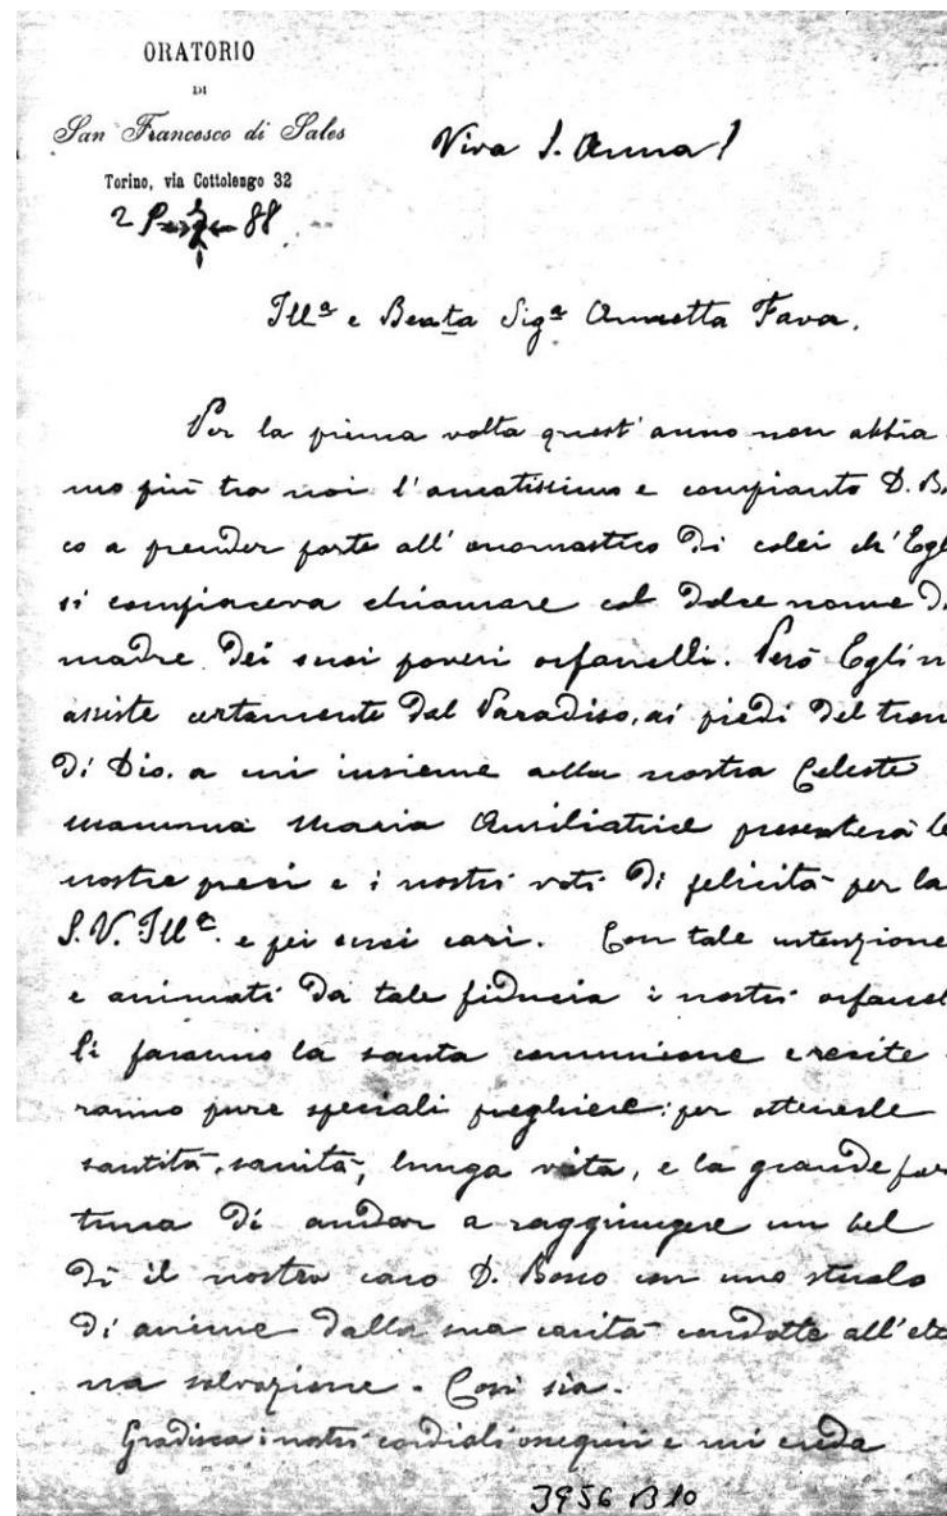 ORATORIO
DI
San Francesco di Sales
Torino, via Cottolengo 32
88
Viva S. Anna!
Ill.ª e Beata Sig.ª Annetta Fava.
Per la prima volta quest'anno non abbia
mo più tra noi l'amatissimo e compianto D. B
co a prender parte all'onomastico di colei ch'Egl
si compiaceva chiamare col dolce nome d
madre dei suoi poveri orfanelli. Però Egli n
assiste certamente dal Paradiso, ai piedi del tron
di Dio. a cui insieme alla nostra Celeste
mamma Maria Ausiliatrice presenterà le
nostre preci e i nostri voti di felicità per la
S. V. Ill.ª e pei suoi cari. Con tale intenzione
e animati da tale fiducia i nostri orfanel
li faranno la santa comunione e recite
ranno pure speciali preghiere per ottenerle
santità, sanità, lunga vita, e la grande for
tuna di andar a raggiungere un bel
dì il nostro caro D. Bosco con uno stuolo
di anime dalla sua carità condotte all'ete
na salvazione. Così sia.
Gradisca i nostri cordiali ossequii e mi creda
3956 B10